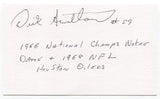 #59
1966 National Champs Notre
Dame + 1969 NFL
Houston Oilers